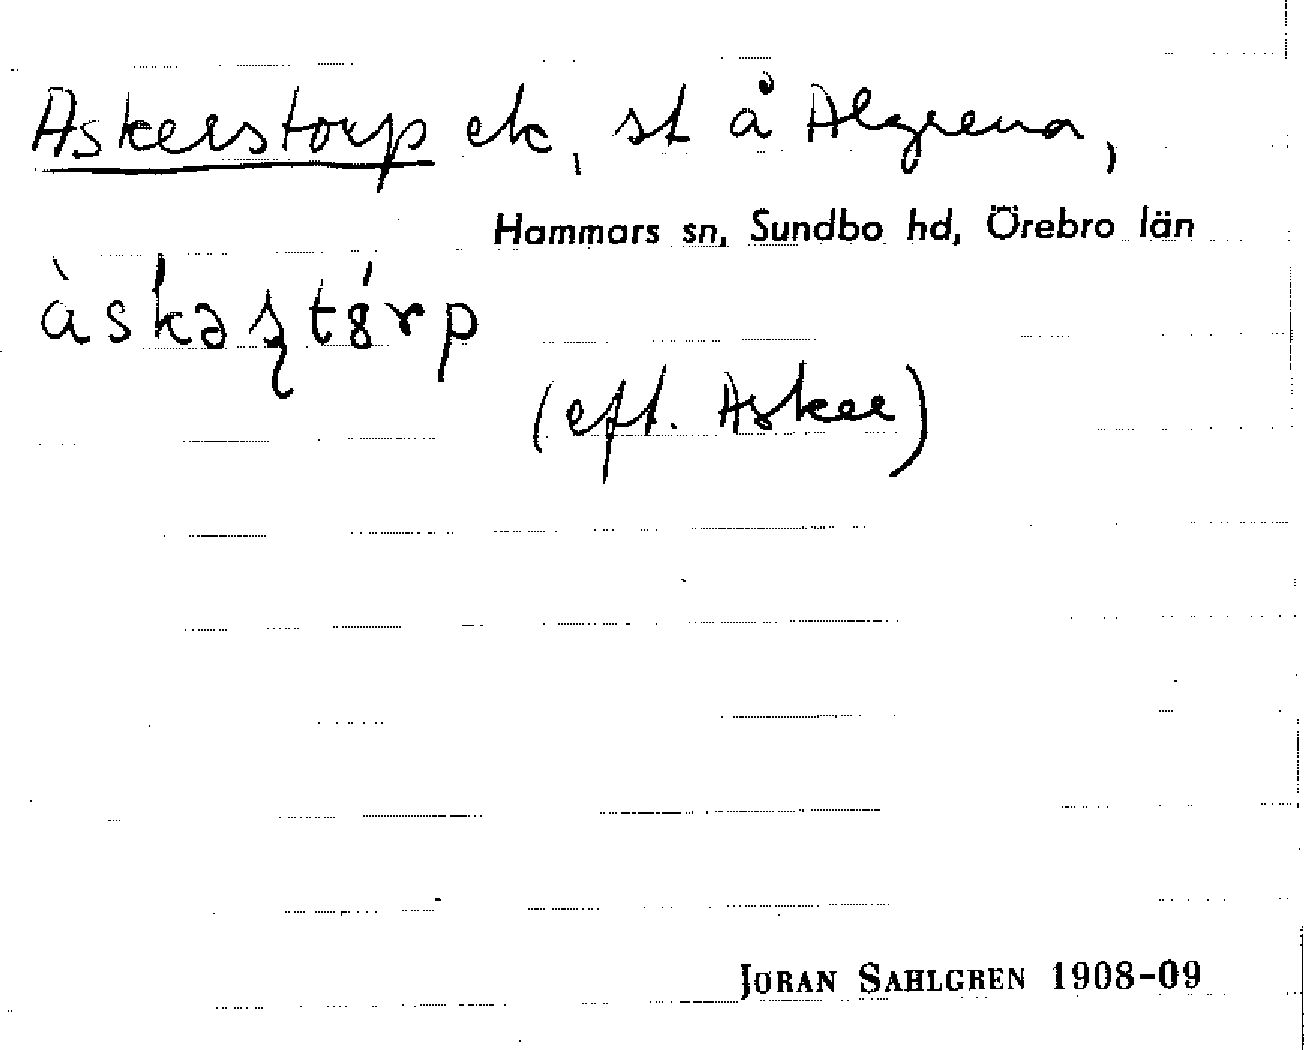 Askerstorp ek, st å Algrena,
Hammars sn, Sundbo hd, Örebro län
àskəʂtórp
(eft. Asker)
JÖRAN SAHLGREN 1908-09